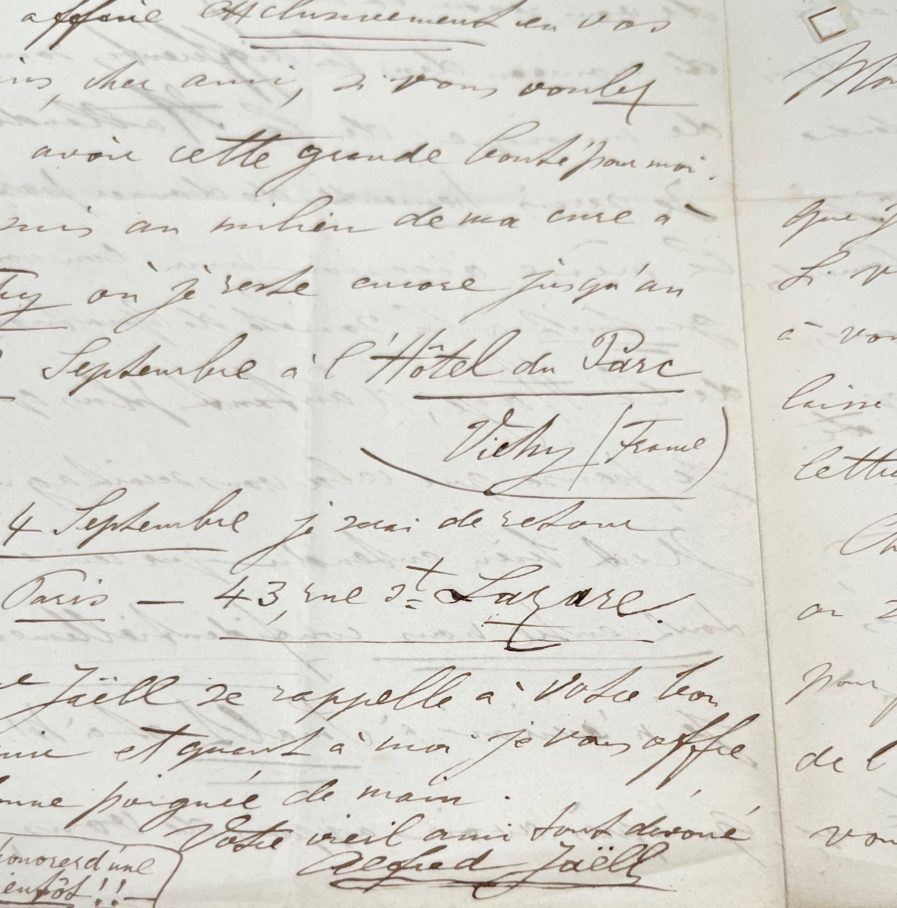 affaire exclusivement en vos
ins, cher ami, si vous voulez
avoir cette grande bonté pour moi.
suis au milieu de ma cure à
où je reste encore jusqu'au
Septembre à l'Hôtel du Parc
Vichy (France)
4 Septembre je serai de retour
Paris — 43, rue St Lazare.
Jaëll se rappelle à votre bon
et quant à moi je vous offre
onne poignée de main.
Votre vieil ami tout dévoué
Alfred Jaëll
honorer d'une
ientôt!!—
Mon
que j
Si v
à vou
laisse
lettre
Ch
on
pour
de l
vou